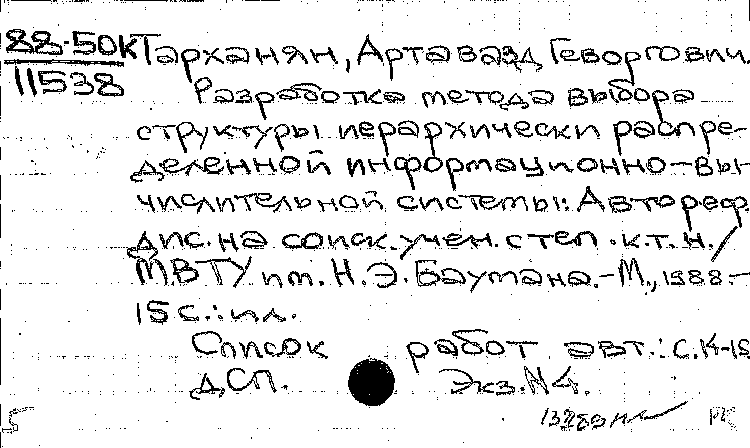 88-50к Тарханян, Артавазд Геворгович.
11538
Разработка метода выбора
структуры иерархически распре-
деленной информационно-вы-
числительной системы: Автореф.
дис. на соиск. учен. степ. к.т.н. /
МВТУ им. Н.Э. Баумана.-М., 1988.-
15 с.: ил.
Список работ авт.: с.К-15
ДСП. Экз.N4.